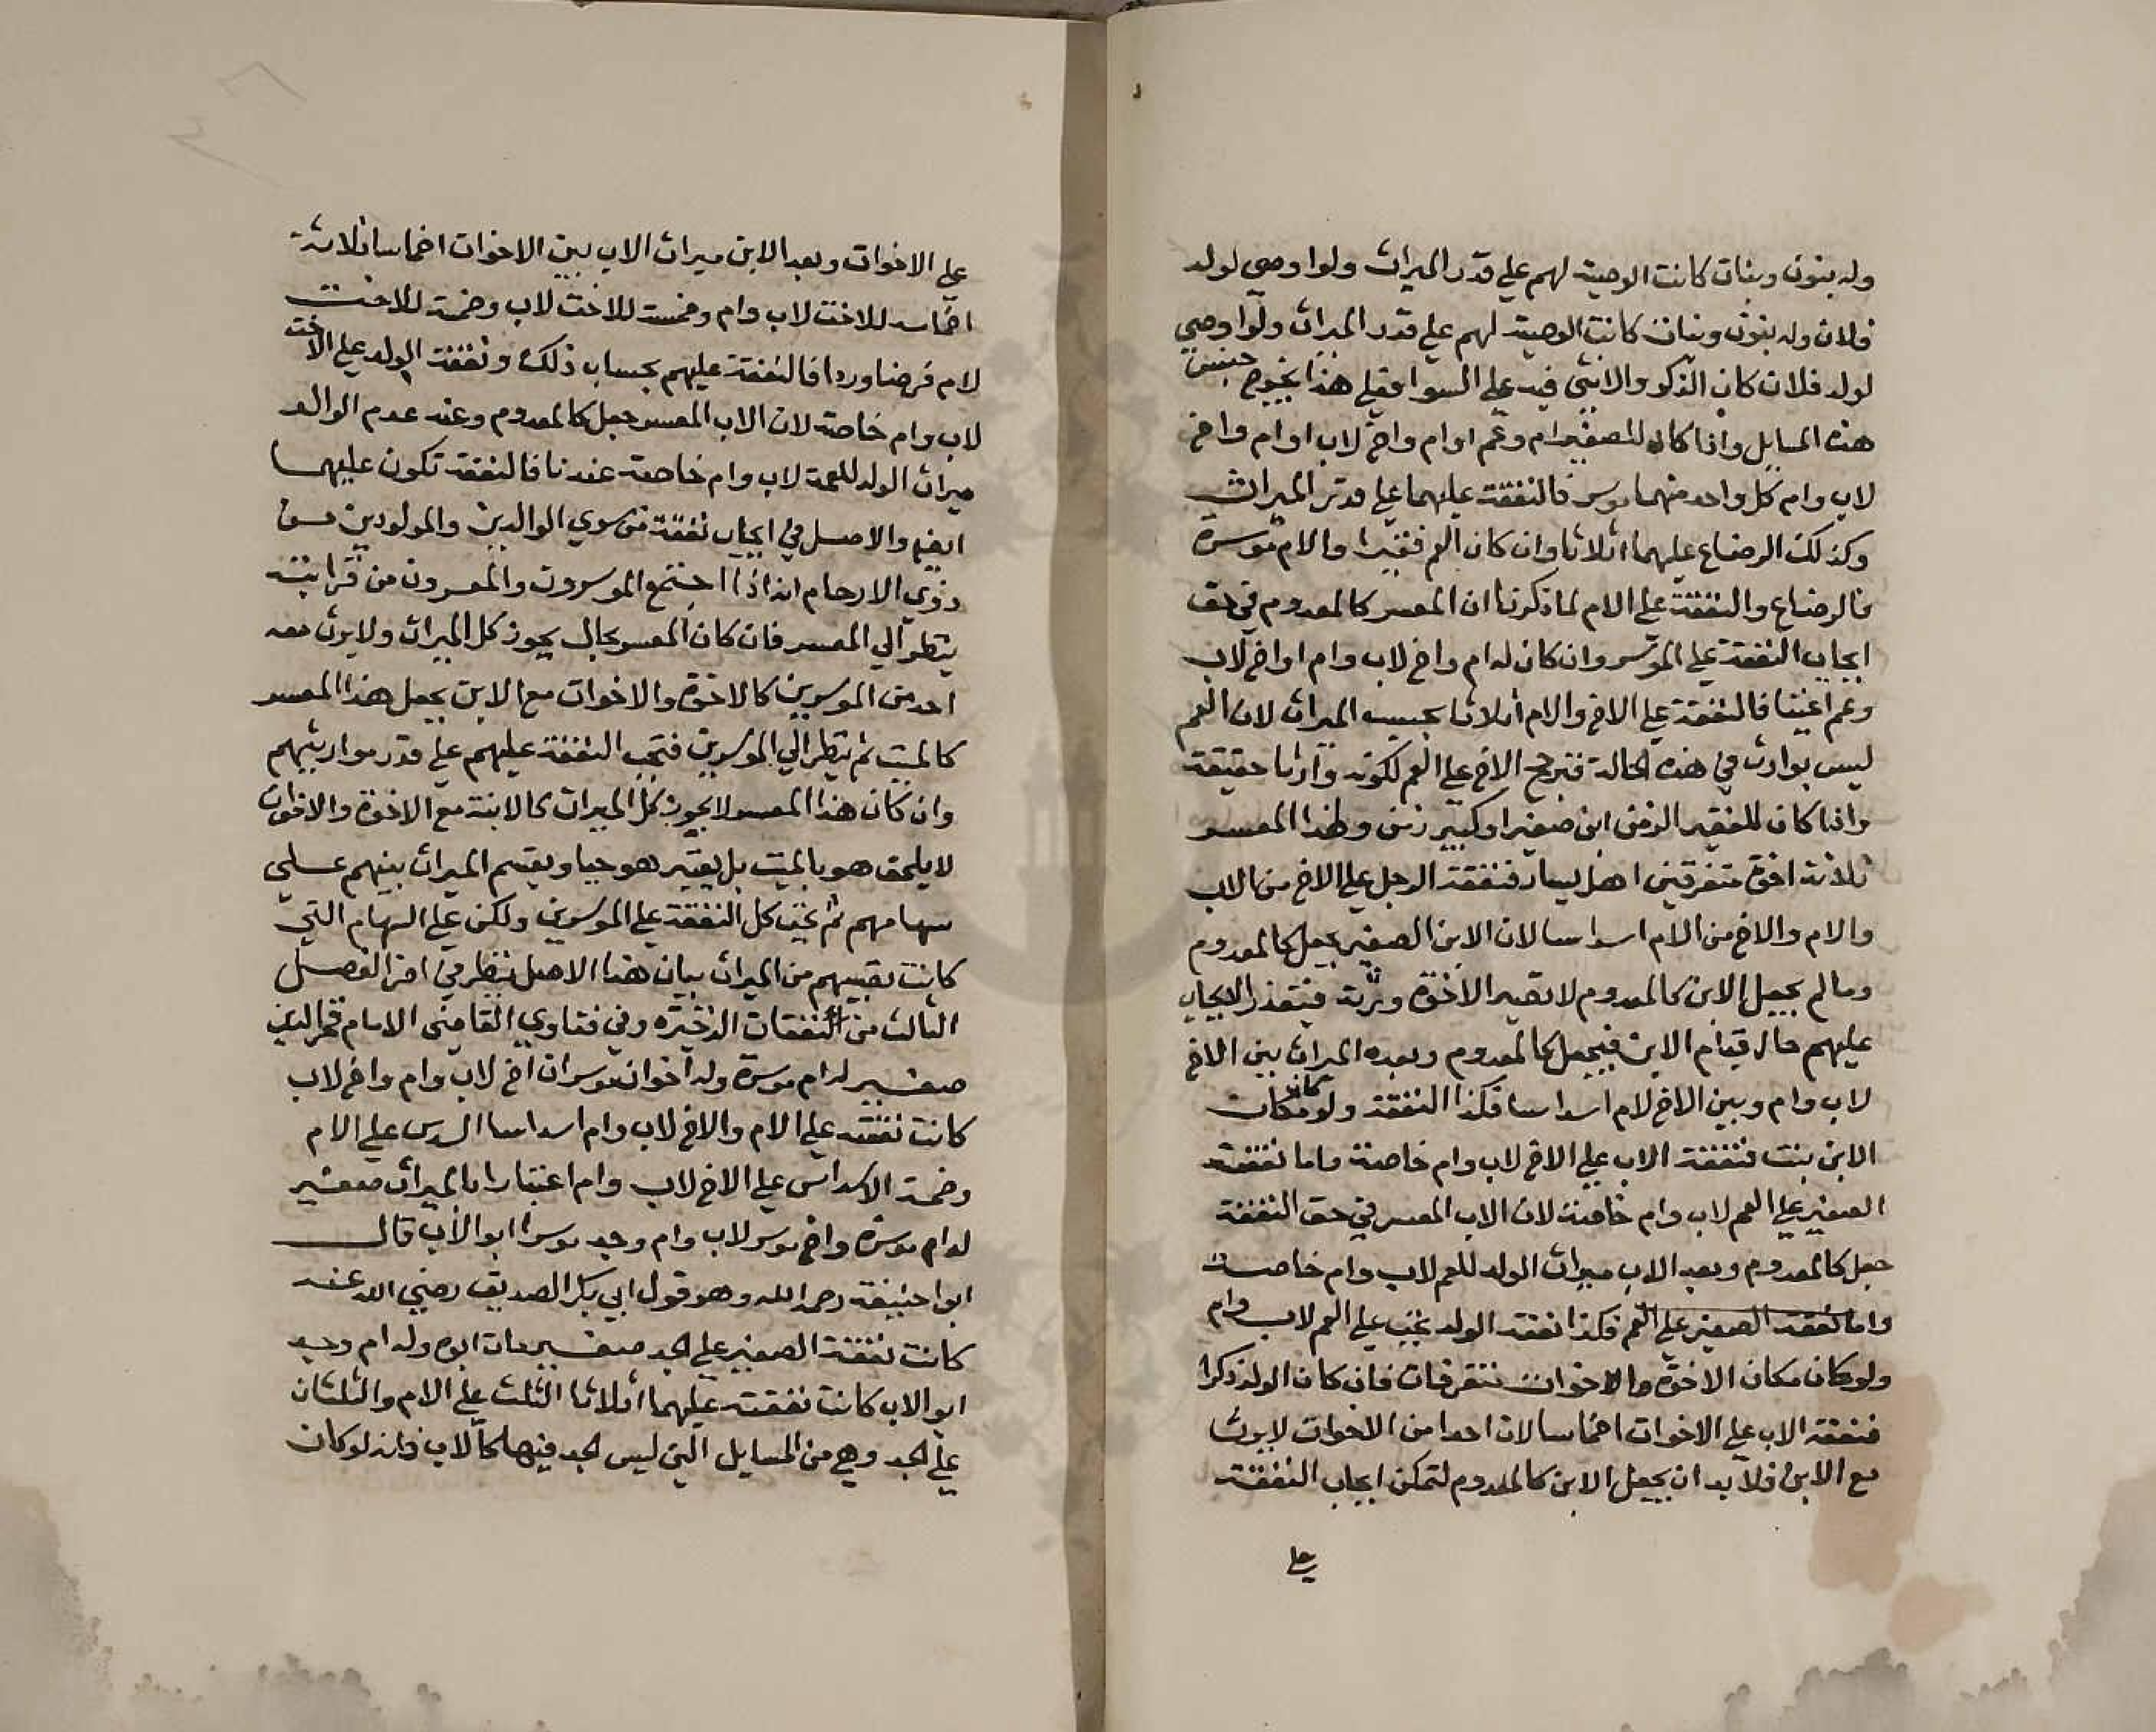 وله بنون وبنات كانت الوصية لهم على قدر الميراث ولو اوصي لولد
فلان وله بنون وبنات كانت الوصية لهم على قدر الميراث ولو اوصي
لولد فلان كان الذكر والانثى فيه على السوا فعلي هذا يخرج جنس
هذه المسايل واذا كان للصغير ام وعم او ام واخ لاب او ام واخ
لاب وام كل واحد منهما موسر فالنفقة عليهما على قدر الميراث
وكذلك الرضاع عليهما اثلاثا وان كان العم فقيرا والام موسرة
فالرضاع والنفقة على الام لما ذكرنا ان المعسر كالمعدوم في حق
ايجاب النفقة على الموسر وان كان له ام واخ لاب وام او اخ لاب
وعم اغنيا فالنفقة على الاخ والام اثلاثا بحسب الميراث لان العم
ليس بوارث في هذه الحالة فترجح الاخ على العم لكونه وارثا حقيقة
واذا كان للفقير الزمن ابن صغير او كبير زمن ولهذا المعسر
ثلاثة اخوة متفرقين اهل يسار فنفقة الرجل على الاخ من الاب
والام والاخ من الام اسداسا لان الابن الصغير يجعل كالمعدوم
وما لم يجعل الابن كالمعدوم لا تصير الاخوة ورثة فيتعذر الايجاب
عليهم حال قيام الابن فيجعل كالمعدوم وبعده الميراث بين الاخ
لاب وام وبين الاخ لام اسداسا فكذا النفقة ولو كان مكان
الابن بنت فنفقة الاب على الاخ لاب وام خاصة واما نفقة
الصغير على العم لاب وام خاصة لان الاب المعسر في حق النفقة
جعل كالمعدوم وبعد الاب ميراث الولد للعم لاب وام خاصة
واما نفقة الصغير على العم فكذا نفقة الولد تجب على العم لاب وام
ولو كان مكان الاخوة والاخوات متفرقات فان كان الولد ذكرا
فنفقة الاب على الاخوات اخماسا لان احدا من الاخوات لا يرث
مع الابن فلا بد ان يجعل الابن كالمعدوم لتمكن ايجاب النفقة
على
على الاخوات وبعد الابن ميراث الاب بين الاخوات اخماسا ثلاثة
اخماسه للاخت لاب وام وخمسه للاخت لاب وخمسه للاخت
لام فرضا وردا فالنفقة عليهم بحساب ذلك ونفقة الولد على الاخت
لاب وام خاصة لان الاب المعسر جعل كالمعدوم وعند عدم الوالد
ميراث الولد للعمة لاب وام خاصة عندنا فالنفقة تكون عليها
ايضا والاصل في ايجاب نفقة من سوي الوالدين والمولودين من
ذوي الارحام انه اذا اجتمع الموسرون والمعسرون من قرابته
ينظر الي المعسر فان كان المعسر بحال يحوز كل الميراث ولا يرث معه
احد من الموسرين كالاخوة والاخوات مع الابن يجعل هذا المعسر
كالميت ثم ينظر الي الموسرين فتجب النفقة عليهم على قدر مواريثهم
وان كان هذا المعسر لا يحوز كل الميراث كالابنة مع الاخوة والاخوات
لا يلحق هو بالميت بل يعتبر هو حيا ويقسم الميراث بينهم علي
سهامهم ثم تجب كل النفقة على الموسرين ولكن على السهام التي
كانت نصيبهم من الميراث بيان هذا الاصل ينظر في اخر الفصل
الثالث من النفقات الذخيرة وفي فتاوي القاضى الامام فخر الدين
صغير له ام موسرة وله اخوان موسران اخ لاب وام واخ لاب
كانت نفقته على الام والاخ لاب وام اسداسا السدس على الام
وخمسة الاسداس على الاخ لاب وام اعتبارا بالميراث صغير
له ام موسرة واخ موسر لاب وام وجد موسر ابو الاب قال
ابو حنيفة رحمه الله وهو قول ابي بكر الصديق رضي الله عنه
كانت نفقة الصغير على الجد صغير مات ابوه وله ام وجد
ابو الاب كانت نفقته عليهما اثلاثا الثلث على الام والثلثان
على الجد وهي من المسايل التي ليس الجد فيها كالاب فانه لو كان